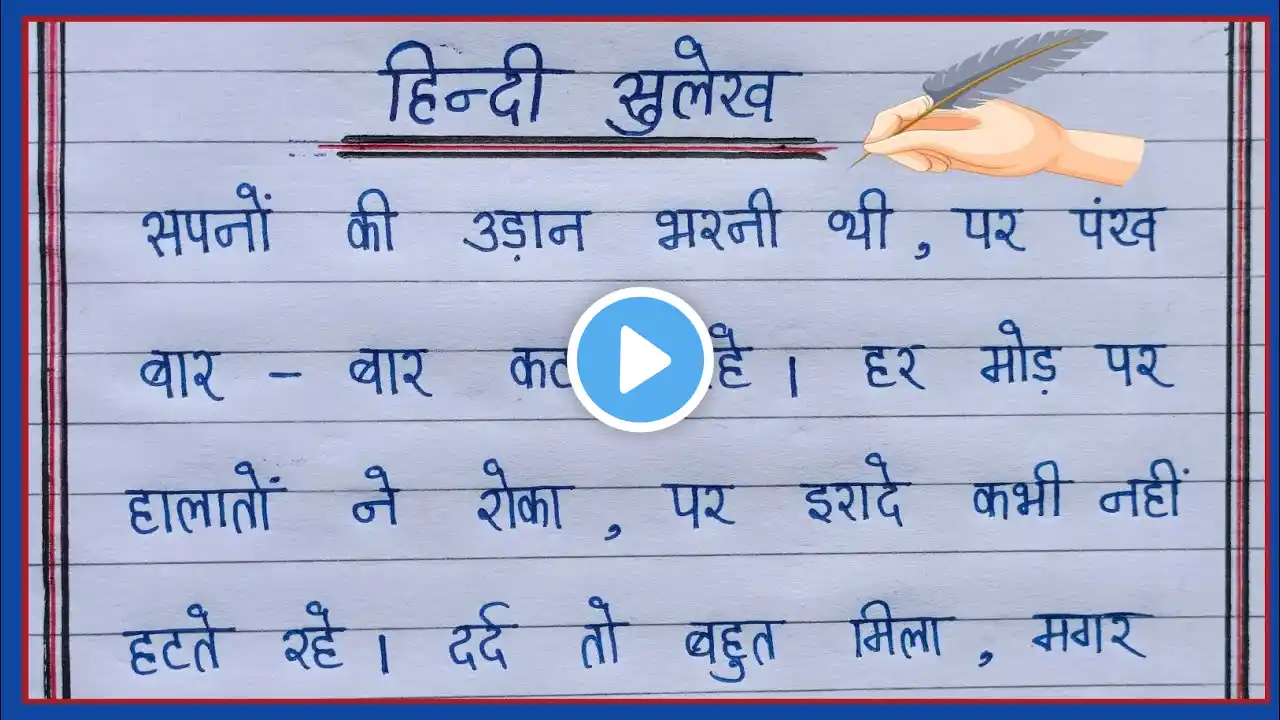 हिन्दी सुलेख
सपनों की उड़ान भरनी थी, पर पंख
बार - बार । हर मोड़ पर
हालातों ने रोका, पर इरादे कभी नहीं
हटते रहे। दर्द तो बहुत मिला, मगर